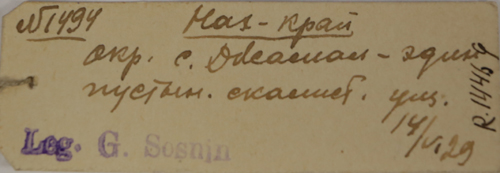 №1494 Нах-край
окр. с. Джамал-эдин
пустын. скалист. ущ.
14/VI 29
Leg. G. Sosnin